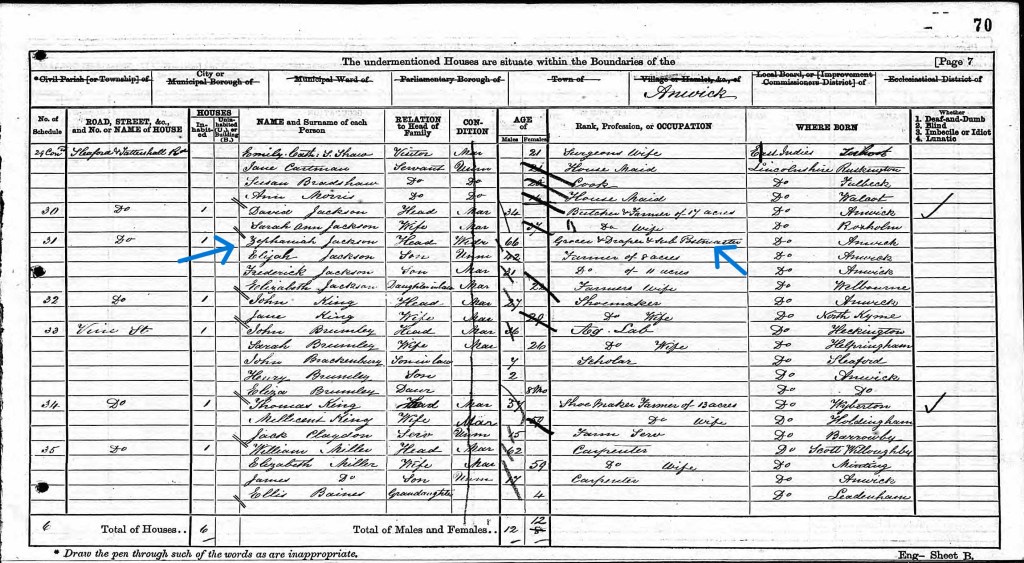 70
The undermentioned Houses are situate within the Boundaries of the [Page 7
*Civil Parish [or Township] of City or Municipal Borough of Municipal Ward of Parliamentary Borough of Town of Village or Hamlet, &c., of Local Board, or [Improvement Commissioners District] of Ecclesiastical District of
Anwick
No. of Schedule ROAD, STREET, &c., and No. or NAME of HOUSE HOUSES Inhabited Uninhabited (U.), or Building (B.) NAME and Surname of each Person RELATION to Head of Family CONDITION AGE of Males Females Rank, Profession, or OCCUPATION WHERE BORN Whether 1. Deaf-and-Dumb 2. Blind 3. Imbecile or Idiot 4. Lunatic
29 Sleaford & Tattershall Emily Cath: S. Shaw Visitor Mar 21 Surgeons Wife East Indies
Jane Cartman Servant Unm House Maid Lincolnshire Ruskington
Susan Bradshaw Do Do Cook Do Fulbeck
Ann Morris Do Do House Maid Do Walcot
30 Do 1 David Jackson Head Mar 34 Butcher & Farmer of 17 acres Do Anwick
Sarah Ann Jackson Wife Mar 37 Do Wife Do Roxholm
31 Do 1 Zephaniah Jackson Head Widr 66 Grocer & Draper & Sub Postmaster Do Anwick
Elijah Jackson Son Unm 42 Farmer of 8 acres Do Anwick
Frederick Jackson Son Mar 31 Do of 11 acres Do Anwick
Elizabeth Jackson Daughterinlaw Mar Farmers Wife Do Welbourne
32 Do 1 John King Head Mar 27 Shoemaker Do Anwick
Jane King Wife Mar 29 Do Wife Do North Kyme
33 Vine St 1 John Brumley Head Mar 36 Ag. Lab Do Heckington
Sarah Brumley Wife Mar 26 Do Wife Do Helpringham
John Brackenbury Soninlaw 7 Scholar Do Sleaford
Henry Brumley Son 2 Do Anwick
Eliza Brumley Daur 8Mo Do Do
34 Do 1 Thomas King Head Mar 37 Shoe Maker Farmer of 13 acres Do Wyberton
Millicent King Wife Mar Do Wife Do Holdingham
Jack Claydon Serv Unm 15 Farm Serv Do Barrowby
35 Do 1 William Miller Head Mar 62 Carpenter Do Scott Willoughby
Elizabeth Miller Wife Mar 59 Do Wife Do Minting
James Do Son Unm 17 Carpenter Do Anwick
Ellis Baines Grandaughter 4 Do Leadenham
6 Total of Houses.. 6 Total of Males and Females.. 12 12
* Draw the pen through such of the words as are inappropriate. Eng- Sheet B.